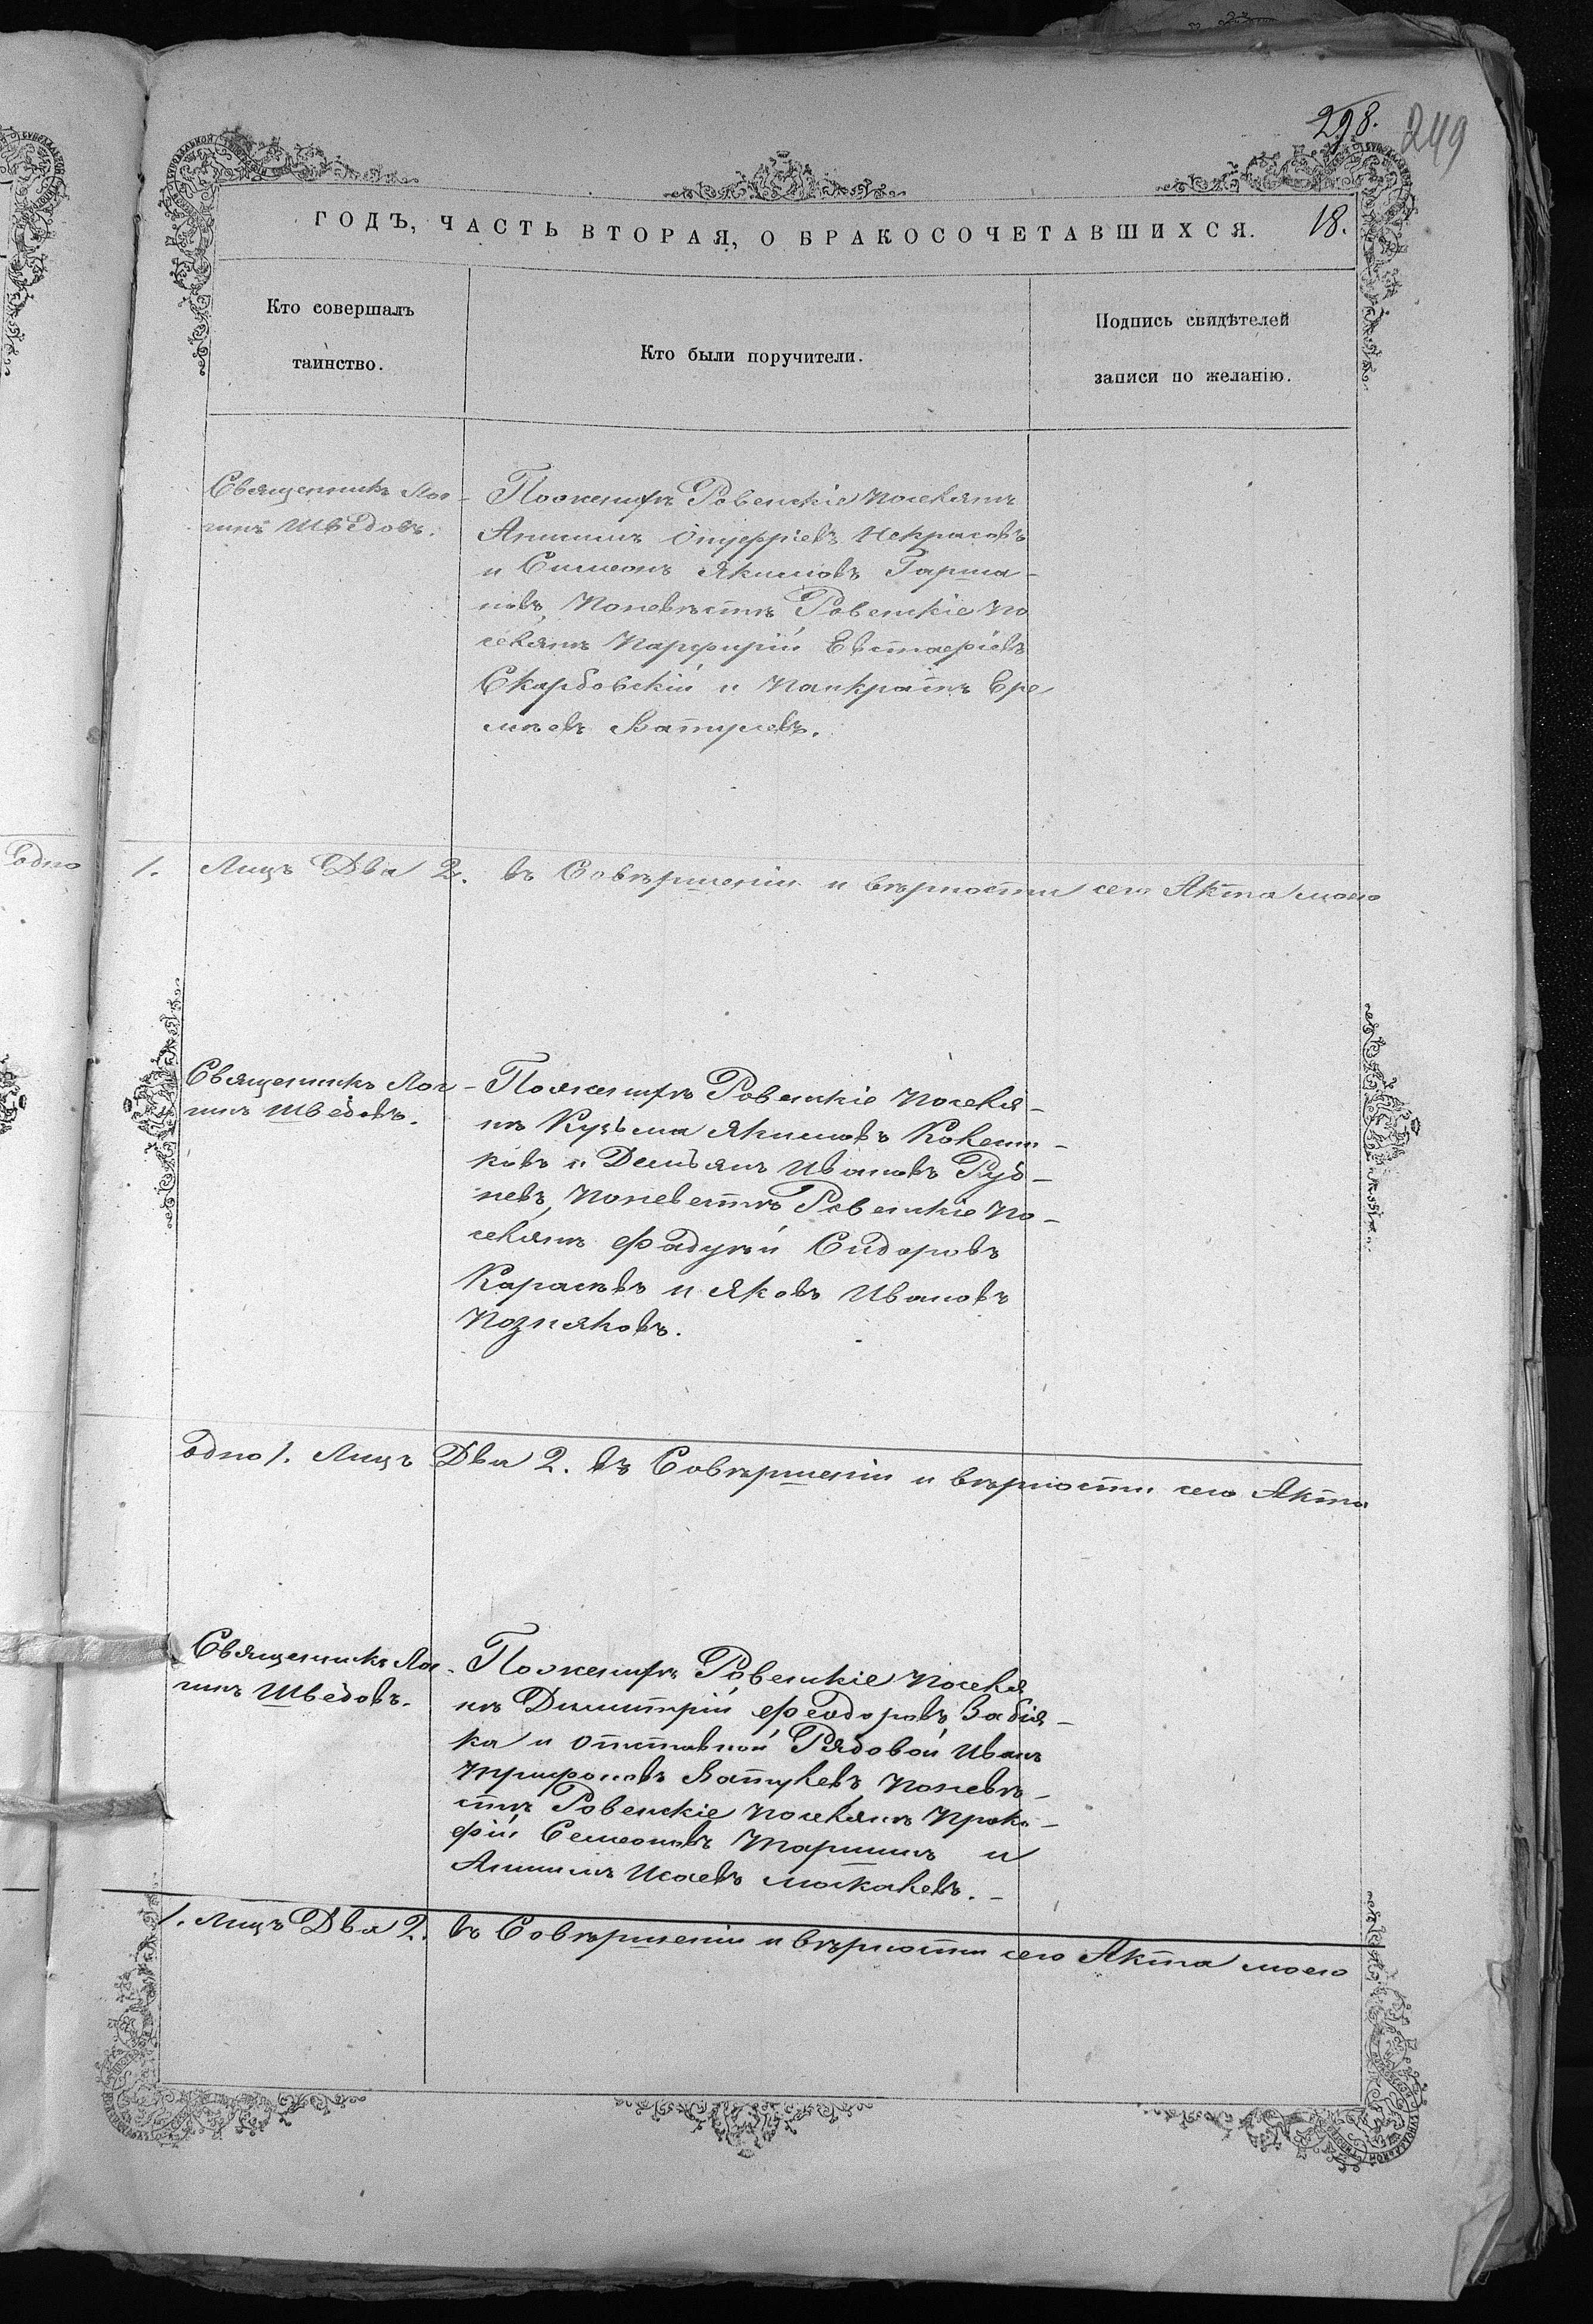 298. 249
ГОДЪ, ЧАСТЬ ВТОРАЯ, О БРАКОСОЧЕТАВШИХСЯ. 18.
Кто совершалъ
таинство.
Кто были поручители.
Подпись свидѣтелей
записи по желанію.
Священникъ Лог-
гинъ Шведовъ.
По женихѣ Ровенскіе поселянѣ
Анисимъ Некрасовъ
и Симеонъ Якимовъ Гарша-
новъ, по невѣстѣ Ровенскіе по
селянѣ Парфирій Евстафіевъ
Скарбовскій и Панкратъ Ере
мѣевъ Ватулевъ.
Одно 1. Лицъ Два 2. въ Совѣршеніи и вѣрности сего Акта мою
Священикъ Лог-
гинъ Шведовъ.
По женихѣ Ровенскіе поселя-
нѣ Кузьма Якимовъ
и Демьянъ Ивановъ Руб-
невъ, по невестѣ Ровенскіе по-
селянѣ Сидоровъ
Карасевъ и Яковъ Ивановъ
Позняковъ.
Одно 1. Лицъ Два 2. въ Совѣршеніи и вѣрности сего Акта
Священникъ Лог-
гинъ Шведовъ.
По женихѣ Ровенскіе поселя
нѣ Димитрій Феодоровъ Забія-
ка и отставной Рядовой Иванъ
Трифоновъ Ватулевъ, по невѣ-
стѣ Ровенскіе поселянѣ Проко-
фій Семеоновъ и
Анисимъ Исаевъ Москалевъ.-
1. Лицъ Два 2. въ Совѣршеніи и вѣрности сего Акта мою